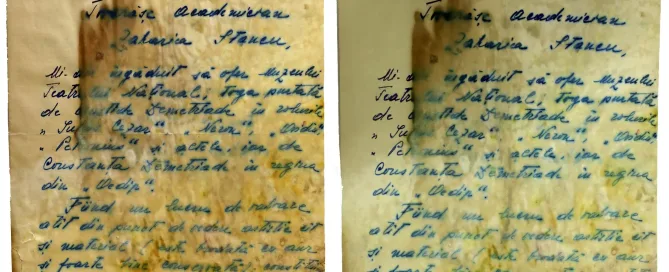 Tovarășe academician
Zaharia Stancu,
Mi-am îngăduit să ofer Muzeului
Teatrului Național, toga purtată
de Aristide Demetriade în rolurile
„Iuliu Cezar”, „Neron”, „Ovidiu”
„Petronius” și altele, iar de
Constanța Demetriade în regina
din „Oedip”.
Fiind un lucru de valoare
atît din punct de vedere artistic cît
și material (este brodată cu aur
și foarte bine conservată)
Tovarășe academician
Zaharia Stancu,
Mi-am îngăduit să ofer Muzeului
Teatrului Național, toga purtată
de Aristide Demetriade în rolurile
„Iuliu Cezar”, „Neron”, „Ovidiu”
„Petronius” și altele, iar de
Constanța Demetriade în regina
din „Oedip”.
Fiind un lucru de valoare
atît din punct de vedere artistic cît
și material (este brodată cu aur
și foarte bine